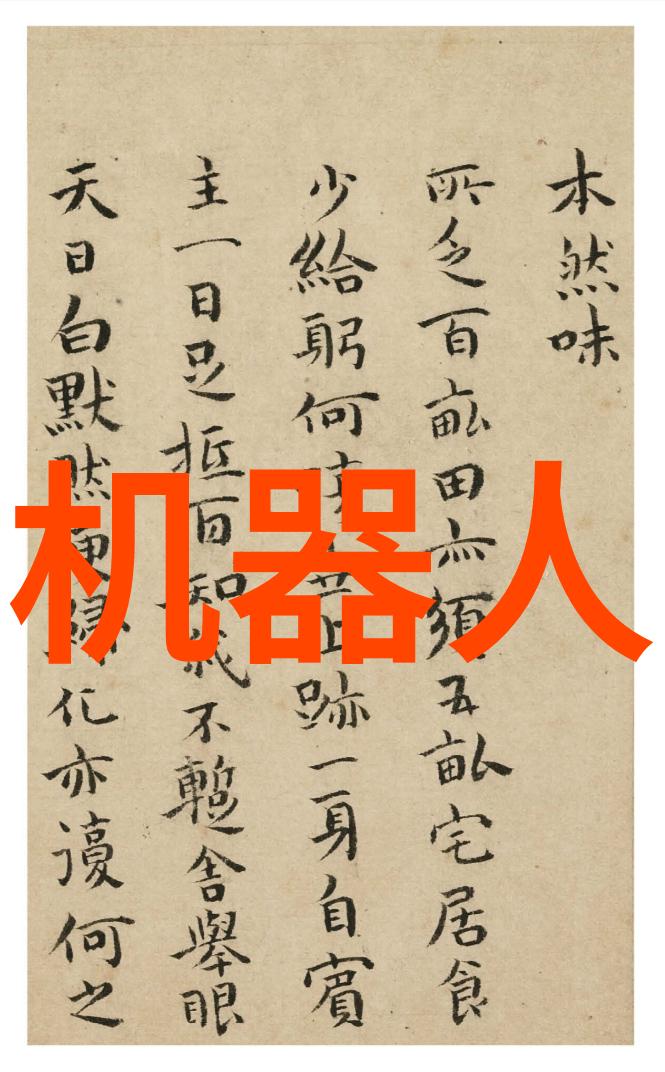 本然味
所乏百畝田亦須五畝宅居食
少給躬何跡一身自賓
主一日足抵百知哉不暫舍舉眼
天日白默然更歸化亦謾何之
机器人